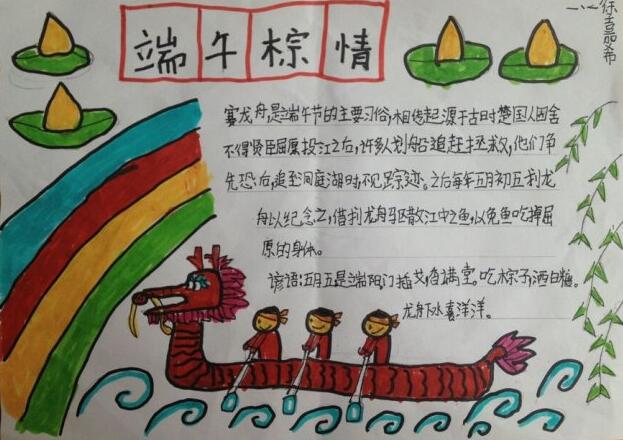 端午棕情
一(一)徐嘉希
赛龙舟,是端午节的主要习俗,相传起源于古时楚国人因舍
不得贤臣屈原投江之后,许多人划船追赶拯救,他们争
先恐后,追至洞庭湖时,不见踪迹。之后每年五月初五划龙
舟以纪念之,借划龙舟驱散江中之鱼,以免鱼吃掉屈
原的身体。
谚语:五月五是端阳门插艾,香满堂。吃棕子,洒白糖。
龙舟下水喜洋洋。